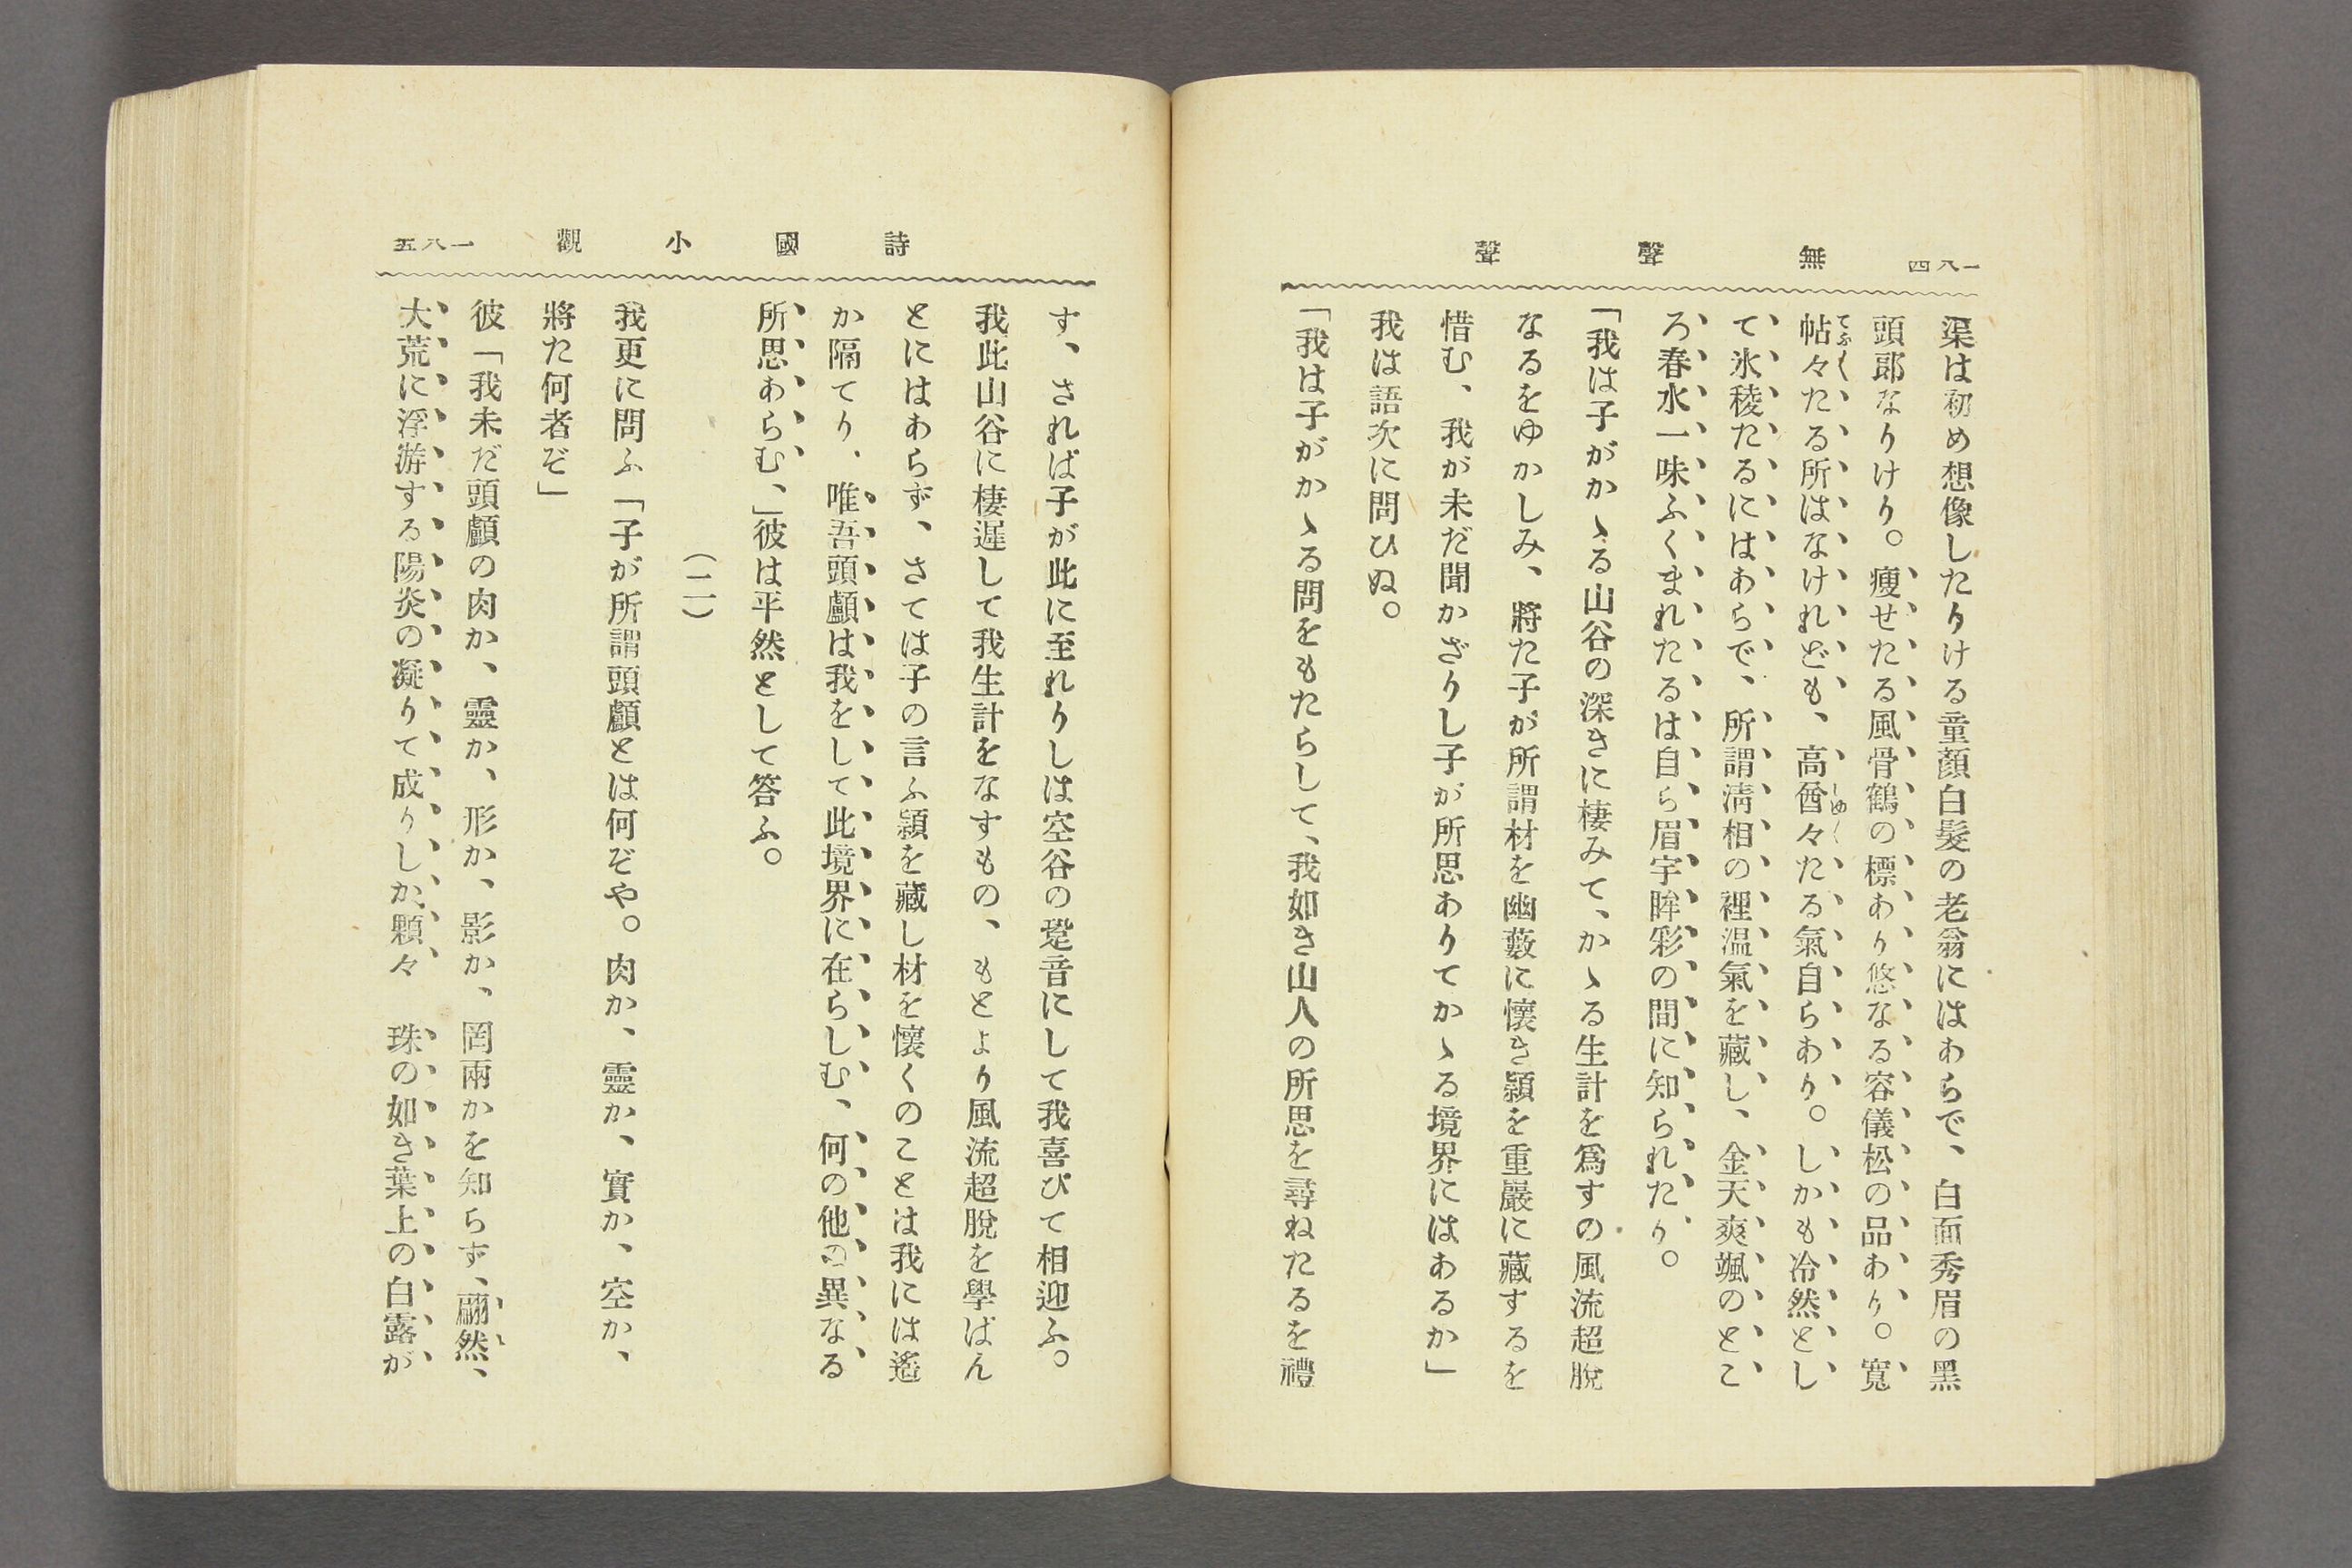 一八四 無聲聲
渠は初め想像したりける童顏白髮の老翁にはあらで、白面秀眉の黑
頭郎なりけり。瘦せたる風骨鶴の標あり悠なる容儀松の品あり。寬
帖々たる所はなけれども、高酋々たる氣自らあり。しかも冷然とし
て氷稜たるにはあらで、所謂淸相の裡溫氣を藏し、金天爽颯のとこ
ろ春水一味ふくまれたるは自ら眉宇眸彩の間に知られたり。
「我は子がかゝる山谷の深きに棲みて、かゝる生計を爲すの風流超脫
なるをゆかしみ、將た子が所謂材を幽藪に懷き穎を重巖に藏するを
惜む、我が未だ聞かざりし子が所思ありてかゝる境界にはあるか」
我は語次に問ひぬ。
「我は子がかゝる問をもたらして、我如き山人の所思を尋ねたるを禮
一八五 詩國小觀
す、されば子が此に至れりしは空谷の跫音にして我喜びて相迎ふ。
我此山谷に棲遲して我生計をなすもの、もとより風流超脫を學ばん
とにはあらず、さては子の言ふ穎を藏し材を懷くのことは我には遙
か隔てり、唯吾頭顱は我をして此境界に在らしむ、何の他の異なる
所思あらむ、」彼は平然として答ふ。
(二)
我更に問ふ「子が所謂頭顱とは何ぞや。肉か、靈か、實か、空か、
將た何者ぞ」
彼「我未だ頭顱の肉か、靈か、形か、影か、罔兩かを知らず、翩然、
大荒に浮游する陽炎の凝りて成りしか、顆々 珠の如き葉上の白露が